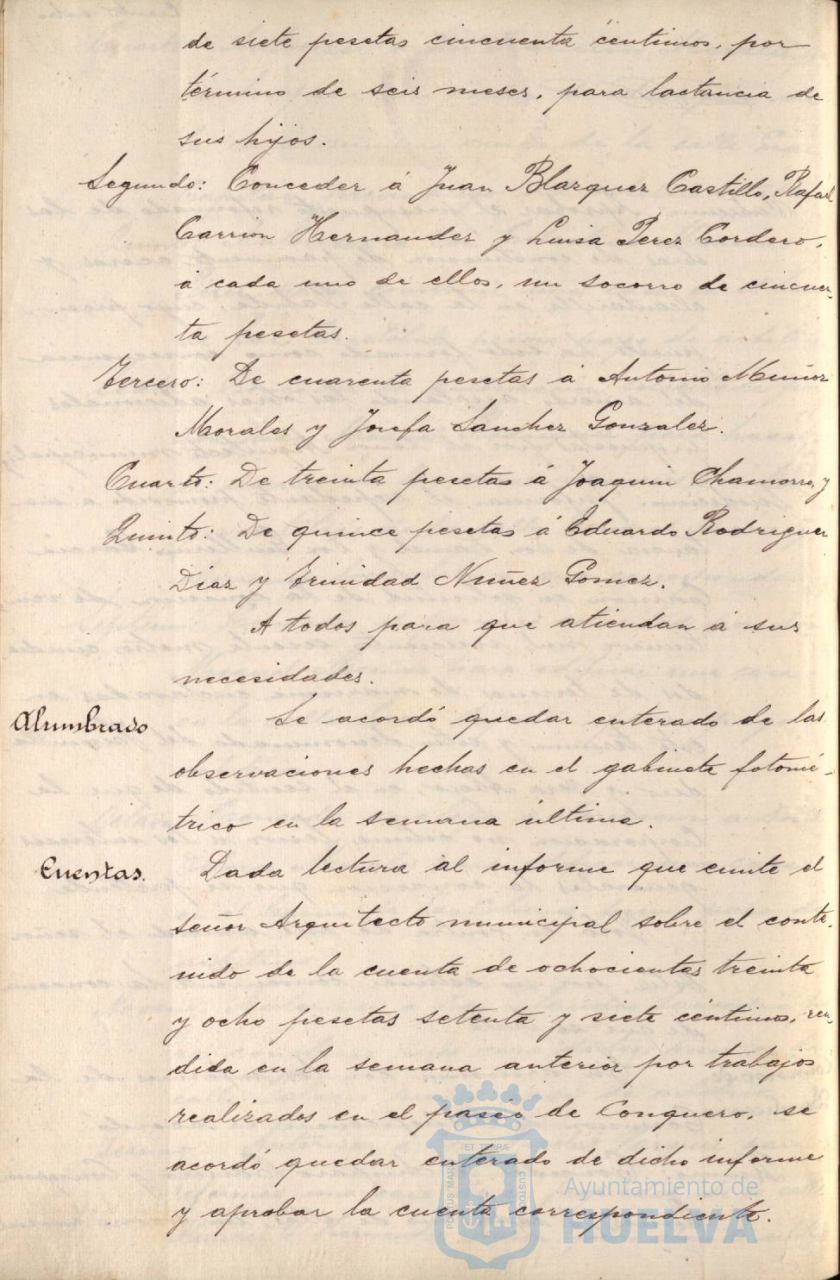 de siete pesetas cincuenta centimos, por
término de seis meses, para lactancia de
sus hijos.
Segundo: Conceder á Juan Blazquez Castillo, Rafael
Carrion Hernandez y Luisa Perez Cordero,
á cada uno de ellos, un socorro de cincuen-
ta pesetas.
Tercero: De cuarenta pesetas á Antonio Muñoz
Morales y Josefa Sanchez Gonzalez.
Cuarto: De treinta pesetas á Joaquin Chamorro, y
Quinto: De quince pesetas á Eduardo Rodriguez
Diaz y Trinidad Nuñez Gomez.
A todos para que atiendan á sus
necesidades.
Alumbrado Se acordó quedar enterado de las
observaciones hechas en el gabinete fotomé-
trico en la semana última.
Cuentas. Dada lectura al informe que emite el
señor Arquitecto municipal sobre el conte-
nido de la cuenta de ochocientas treinta
y ocho pesetas setenta y siete céntimos, ren-
dida en la semana anterior por trabajos
realizados en el paseo de Conquero, se
acordó quedar enterado de dicho informe
y aprobar la cuenta correspondiente.
Ayuntamiento de
HUELVA